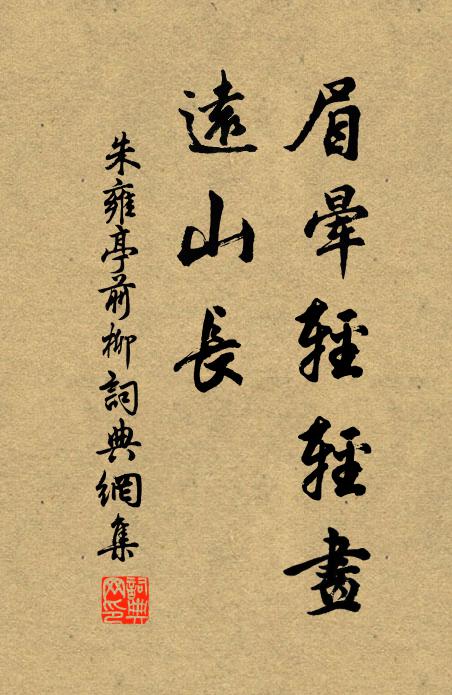 眉暈輕輕畫
遠山長
朱雍亭前柳詞典網集
詞典网印